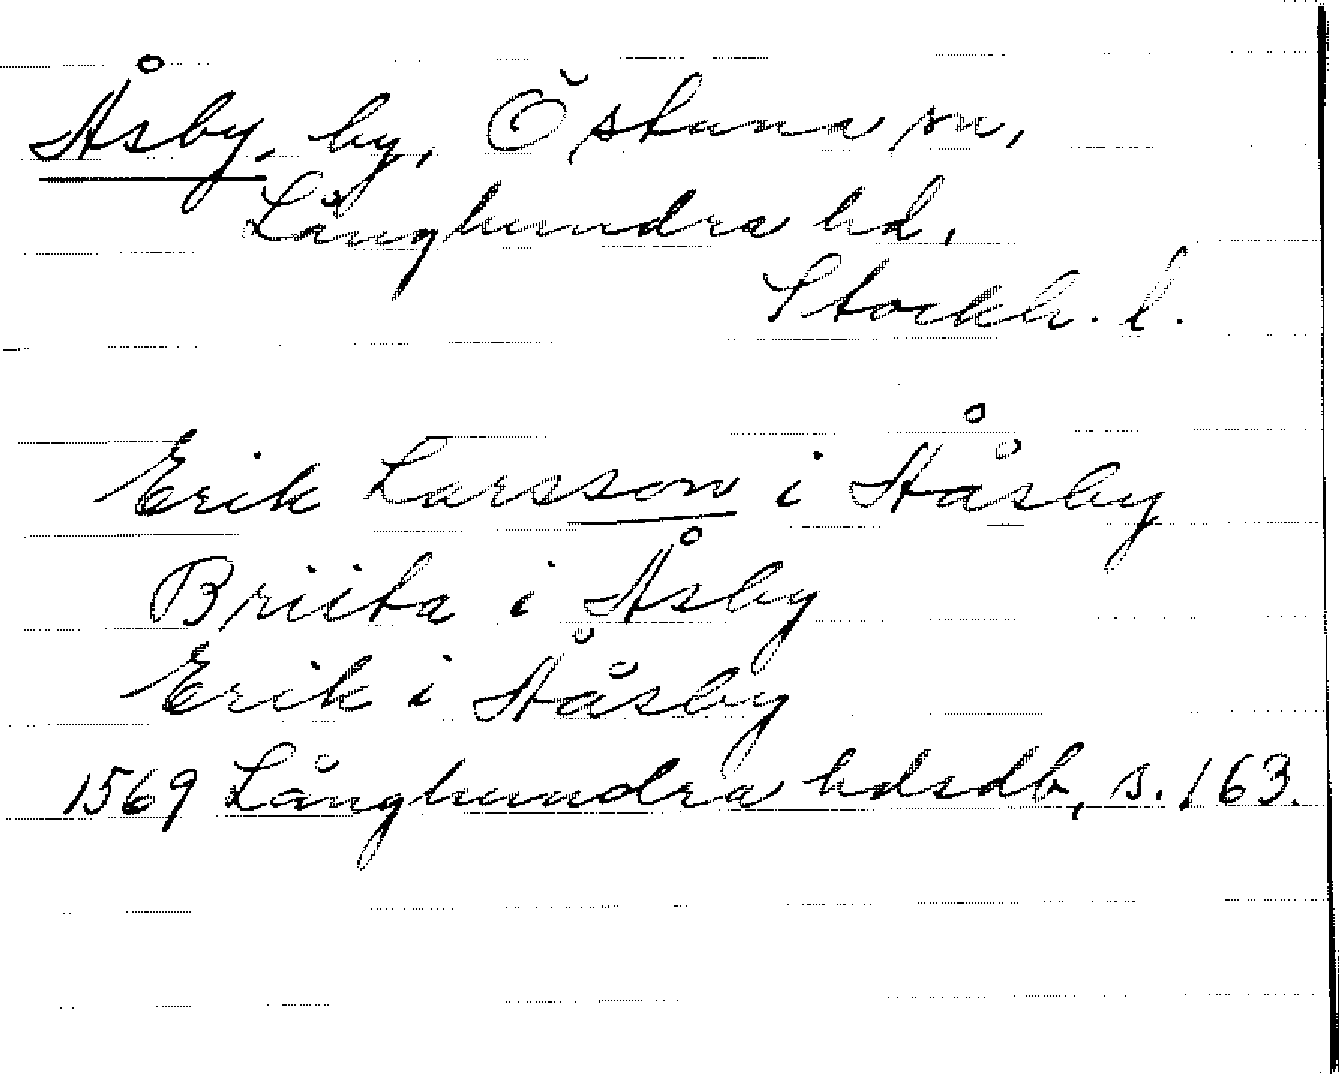 Åsby, by, Östuna sn,
Långhundra hd,
Stockh. l.
Erik Larsson i Ååsby
Briita i Åsby
Erik i Ååsby
1569 Långhundra hdsdb, s. 163.